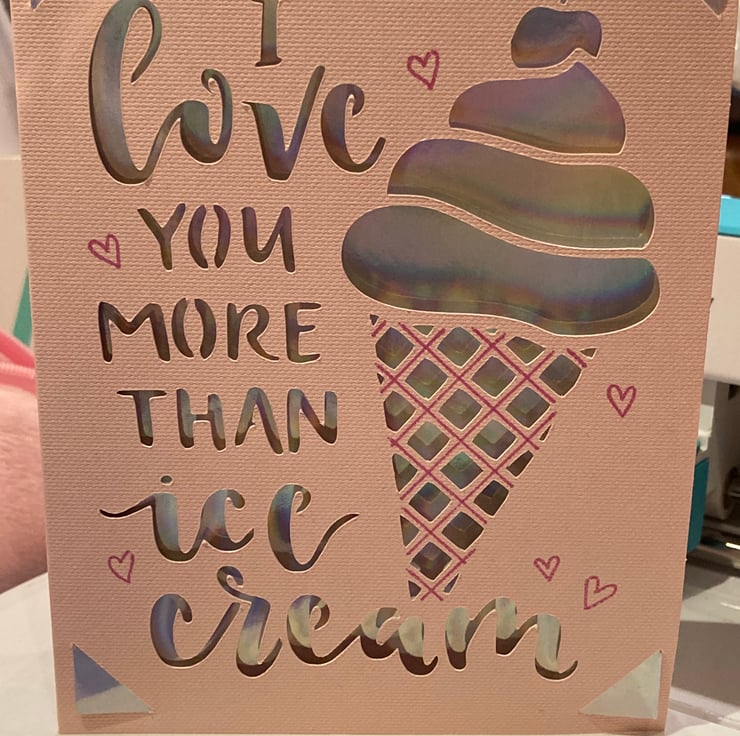 I
love
YOU
MORE
THAN
ice
cream